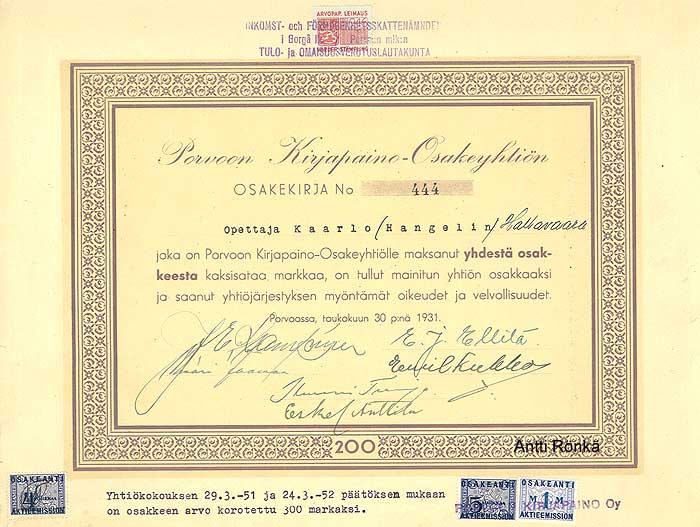 ARVOPAP. LEIMAUS
INKOMST- och FÖRMÖGENHETSSKATTENÄMNDEN
i Borgå
TULO- ja OMAISUUSVEROTUSLAUTAKUNTA
Porvoon Kirjapaino-Osakeyhtiön
OSAKEKIRJA No 444
Opettaja Kaarlo (Hangelin) Hallavaara
joka on Porvoon Kirjapaino-Osakeyhtiölle maksanut yhdestä osak-
keesta kaksisataa markkaa, on tullut mainitun yhtiön osakkaaksi
ja saanut yhtiöjärjestyksen myöntämät oikeudet ja velvollisuudet.
Porvoossa, toukokuun 30 p:nä 1931.
E. J. Ellilä.
200
Antti Rönkä
OSAKEANTI
4
AKTIEEMISSION
Yhtiökokouksen 29.3.-51 ja 24.3.-52 päätöksen mukaan
on osakkeen arvo korotettu 300 markaksi.
OSAKEANTI
5
AKTIEEMISSION
OSAKEANTI
M 1 M
AKTIEEMISSION
KIRJAPAINO Oy